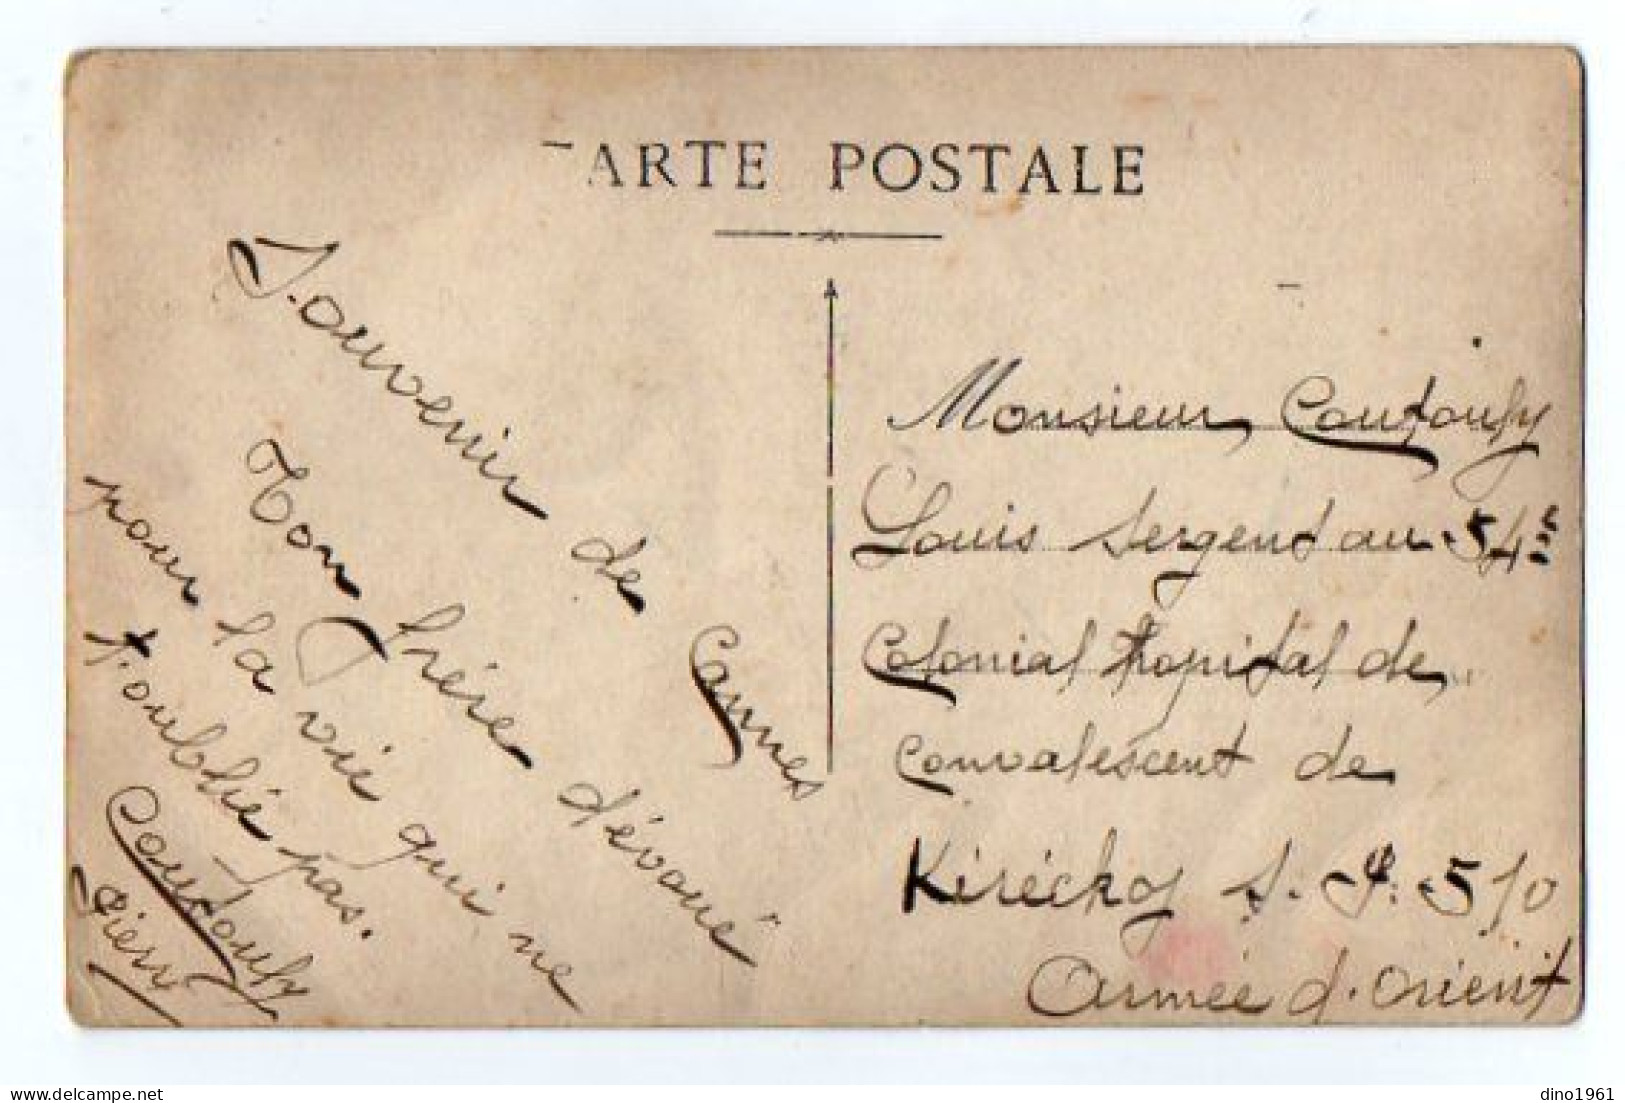 CARTE POSTALE
Souvenir de Cannes
Ton frère dévoué
pour la vie qui ne
t'oublié pas.
Coudoufy
Pierre
Monsieur Coudoufy
Louis sergent au 54e
Colonial hopital de
Convalescent de
Kiréchoj S. P. 510
Armée d'Orient
dino1961